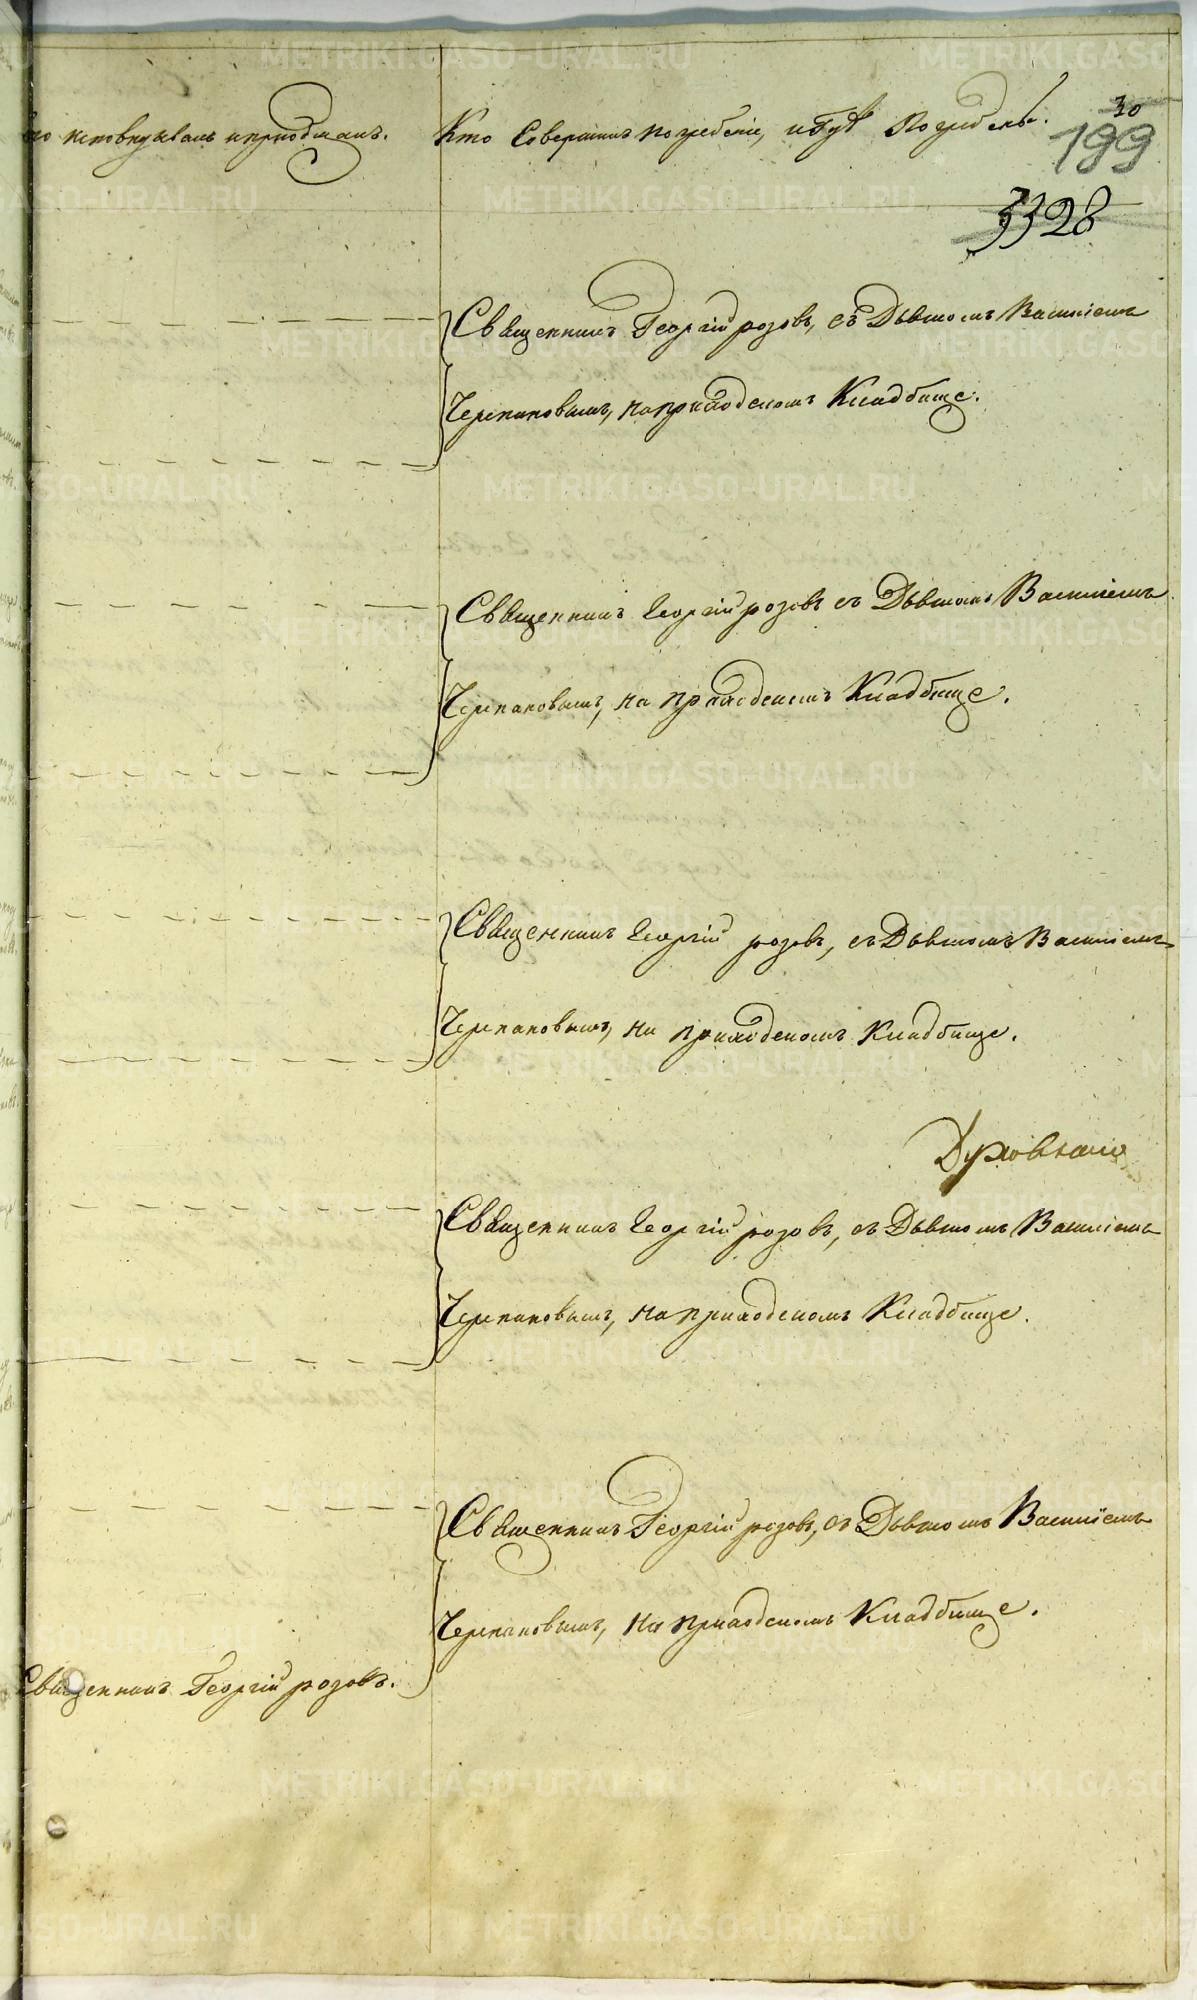 исповѣдывалъ и приобщалъ.
Кто Совершалъ погребеніе, и гдѣ Погребены.
30
199
3328
Священникъ Георгій розовъ, съ Дьячкомъ Василіемъ
Черепановымъ, на приходскомъ Кладбище.
Священникъ Георгій розовъ съ Дьячкомъ Василіемъ
Черепановымъ, на приходскомъ Кладбище.
Священникъ Георгій розовъ, съ Дьячкомъ Василіемъ
Черепановымъ, на приходскомъ Кладбище.
Священникъ Георгій розовъ, съ Дьячкомъ Василіемъ
Черепановымъ, на приходскомъ Кладбище.
Священникъ Георгій розовъ, съ Дьячкомъ Василіемъ
Черепановымъ, на приходскомъ Кладбище.
Священникъ Георгій розовъ.
METRIKI.GASO-URAL.RU